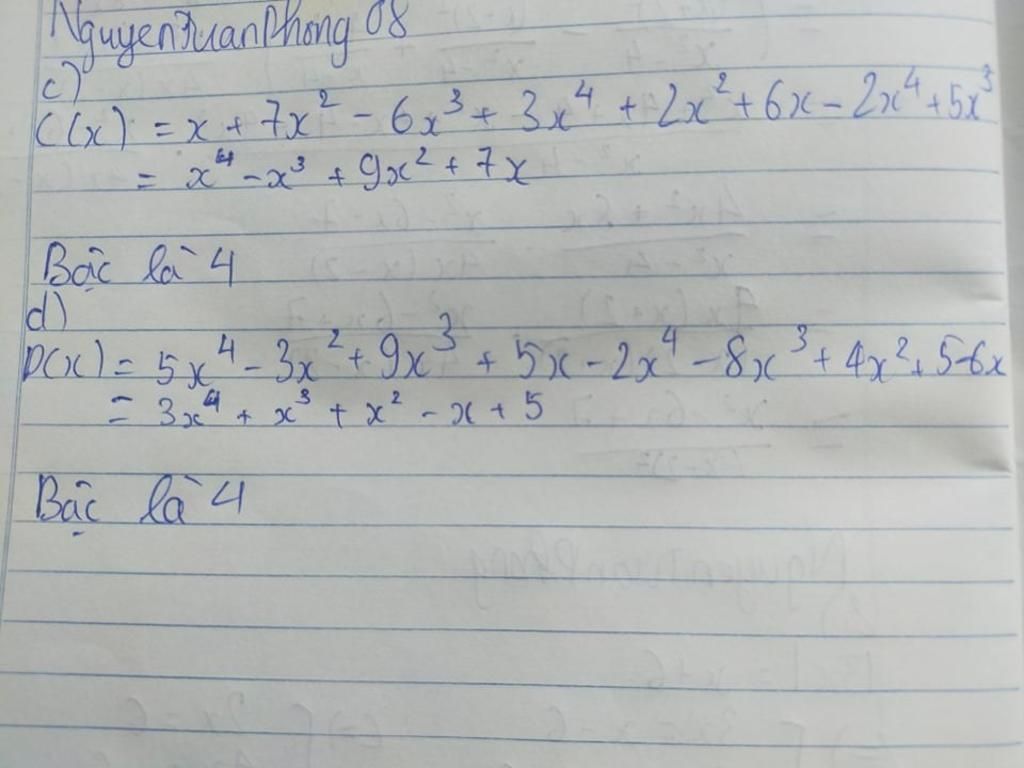 NguyenTuanPhong 08
c)
C(x) = x + 7x² - 6x³ + 3x⁴ + 2x² + 6x - 2x⁴ + 5x³
= x⁴ - x³ + 9x² + 7x
Bậc là 4
d)
D(x) = 5x⁴ - 3x² + 9x³ + 5x - 2x⁴ - 8x³ + 4x² + 5 - 6x
= 3x⁴ + x³ + x² - x + 5
Bậc là 4